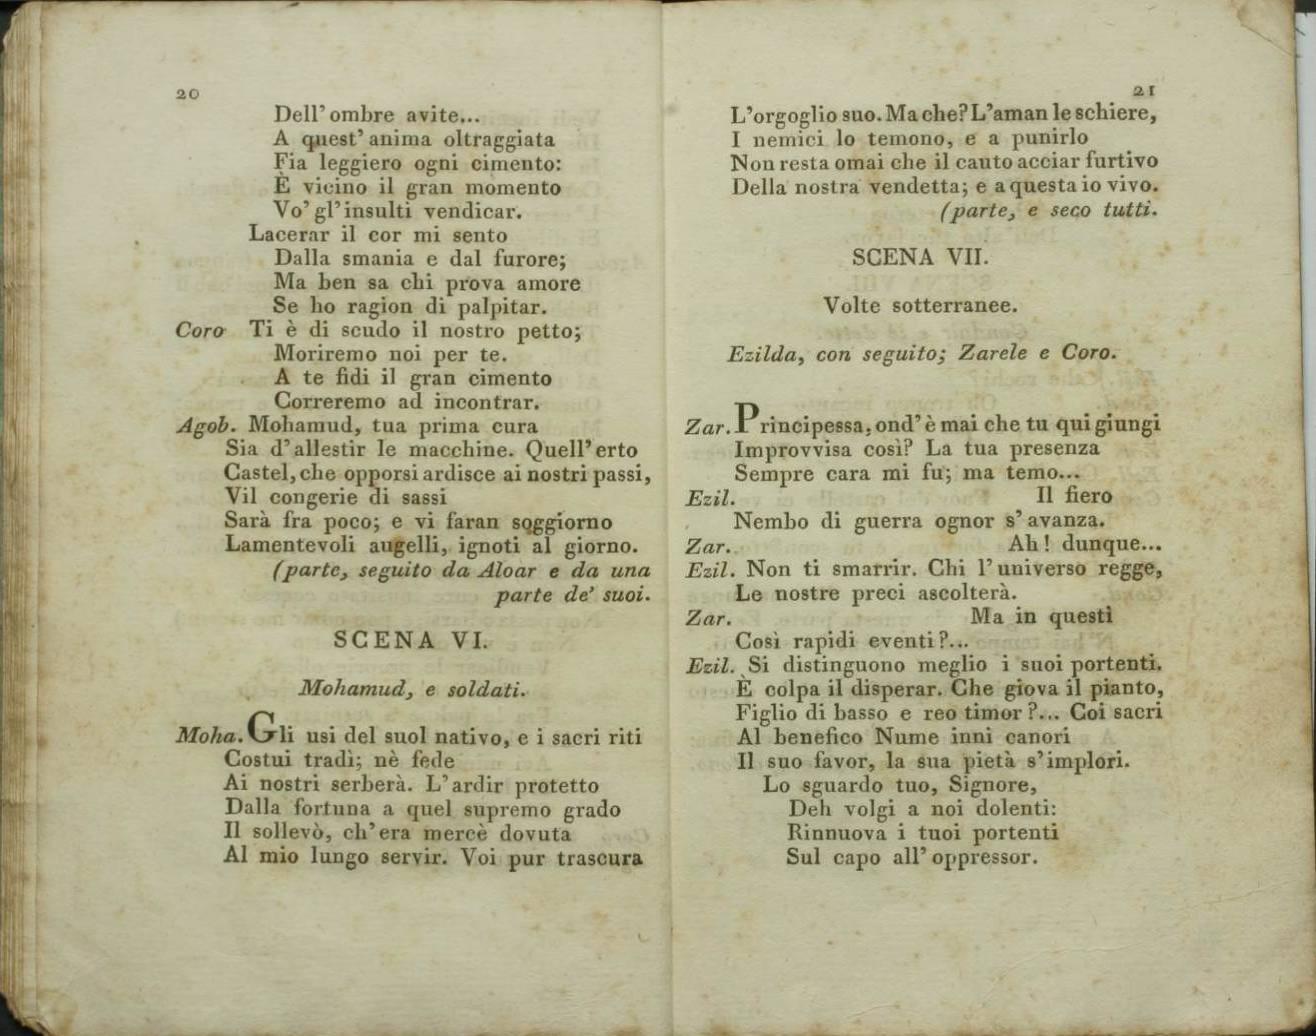 20
Dell' ombre avite...
A quest' anima oltraggiata
Fia leggiero ogni cimento:
È vicino il gran momento
Vo' gl' insulti vendicar.
Lacerar il cor mi sento
Dalla smania e dal furore;
Ma ben sa chi prova amore
Se ho ragion di palpitar.
Coro Ti è di scudo il nostro petto;
Moriremo noi per te.
A te fidi il gran cimento
Correremo ad incontrar.
Agob. Mohamud, tua prima cura
Sia d' allestir le macchine. Quell' erto
Castel, che opporsi ardisce ai nostri passi,
Vil congerie di sassi
Sarà fra poco; e vi faran soggiorno
Lamentevoli augelli, ignoti al giorno.
(parte, seguito da Aloar e da una
parte de' suoi.
SCENA VI.
Mohamud, e soldati.
Moha. Gli usi del suol nativo, e i sacri riti
Costui tradì; nè fede
Ai nostri serberà. L' ardir protetto
Dalla fortuna a quel supremo grado
Il sollevò, ch' era mercè dovuta
Al mio lungo servir. Voi pur trascura
21
L'orgoglio suo. Ma che? L'aman le schiere,
I nemici lo temono, e a punirlo
Non resta omai che il cauto acciar furtivo
Della nostra vendetta; e a questa io vivo.
(parte, e seco tutti.
SCENA VII.
Volte sotterranee.
Ezilda, con seguito; Zarele e Coro.
Zar. Principessa, ond' è mai che tu qui giungi
Improvvisa così? La tua presenza
Sempre cara mi fu; ma temo...
Ezil. Il fiero
Nembo di guerra ognor s' avanza.
Zar. Ah! dunque...
Ezil. Non ti smarrir. Chi l' universo regge,
Le nostre preci ascolterà.
Zar. Ma in questi
Così rapidi eventi?...
Ezil. Si distinguono meglio i suoi portenti.
È colpa il disperar. Che giova il pianto,
Figlio di basso e reo timor?... Coi sacri
Al benefico Nume inni canori
Il suo favor, la sua pietà s' implori.
Lo sguardo tuo, Signore,
Deh volgi a noi dolenti:
Rinnuova i tuoi portenti
Sul capo all' oppressor.